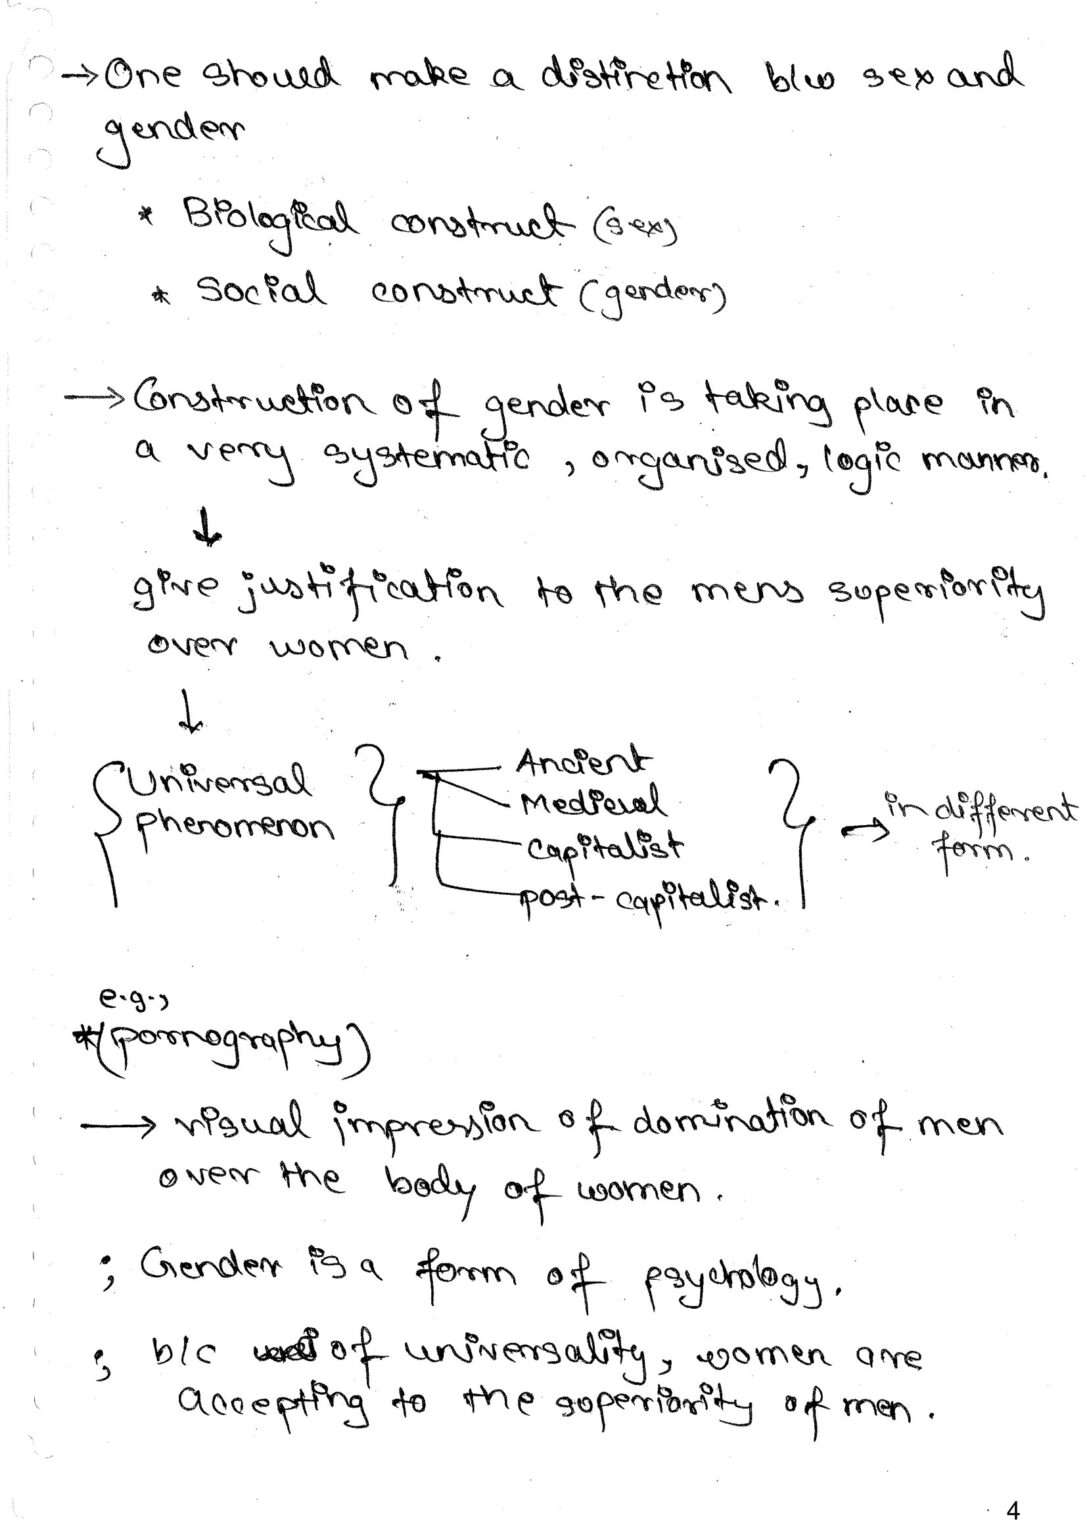 → One should make a distinction b/w sex and
gender
* Biological construct (sex)
* Social construct (gender)
→ Construction of gender is taking place in
a very systematic, organised, logic manner.
↓
give justification to the mens superiority
over women.
↓
Universal
phenomenon
Ancient
Medieval
Capitalist
post-capitalist.
→ in different
form.
e.g.,
*(pornography)
→ visual impression of domination of men
over the body of women.
; Gender is a form of psychology.
; b/c of universality, women are
accepting to the superiority of men.
4